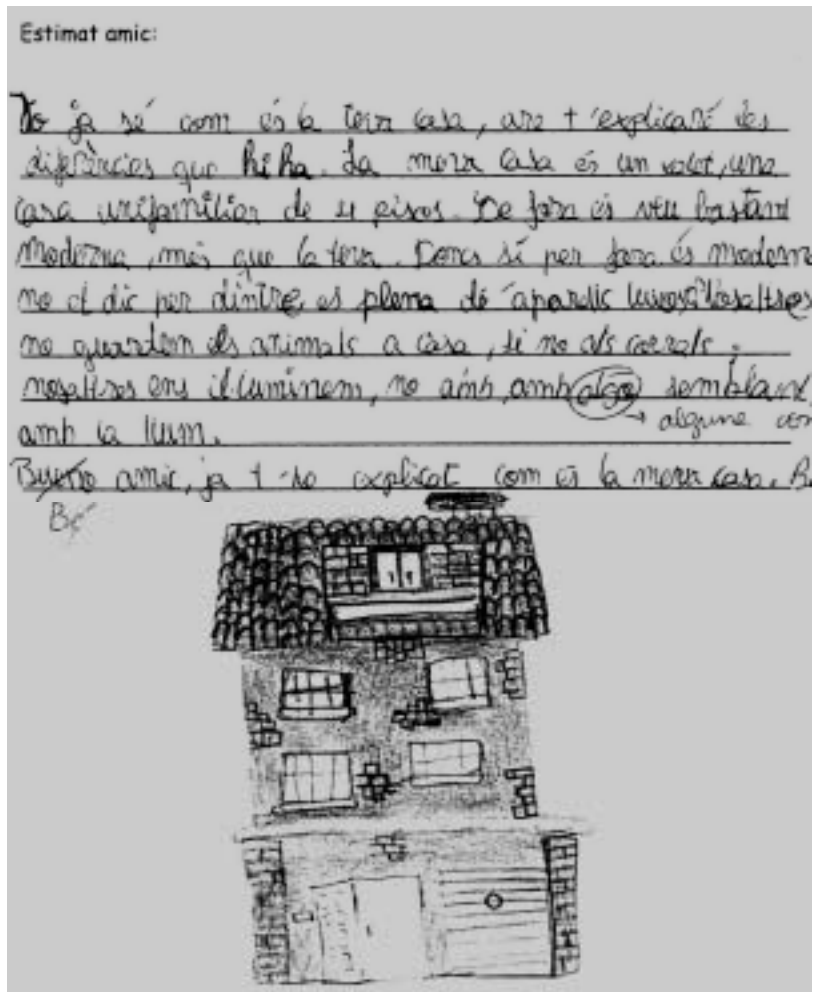 Estimat amic:
Yo ja sé com és la teva casa, ara t'explicaré les
diferències que hi ha. La meva casa és un xalet, una
casa unifamiliar de 4 pisos. De fora es veu bastant
moderna, més que la teva. Doncs sí per fora és moderna
no et dic per dintre, es plena de aparells Nosaltres
no guardem els animals a casa, si no als corrals.
nosaltres ens il·luminem, no amb, amb algo semblant,
→ alguna cos
amb la llum.
Bueno amic, ja t-he explicat com és la meva casa. B
Bé